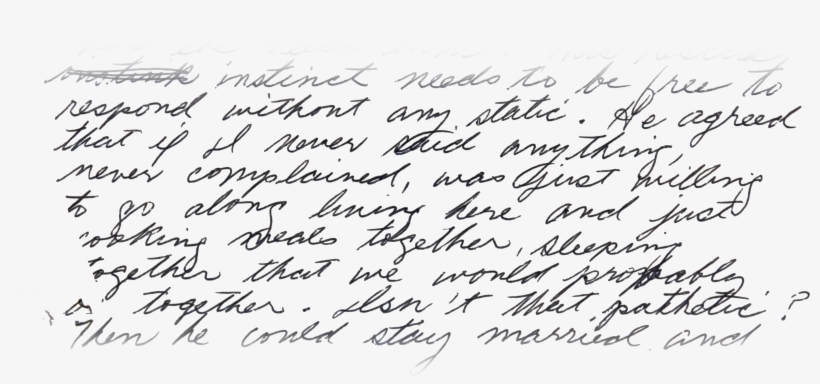 instinct needs to be free to
respond without any static. He agreed
that if I never said anything,
never complained, was just willing
to go along living here and just
cooking meals together, sleeping
together that we would probably
together. Isn't that pathetic?
Then he could stay married and